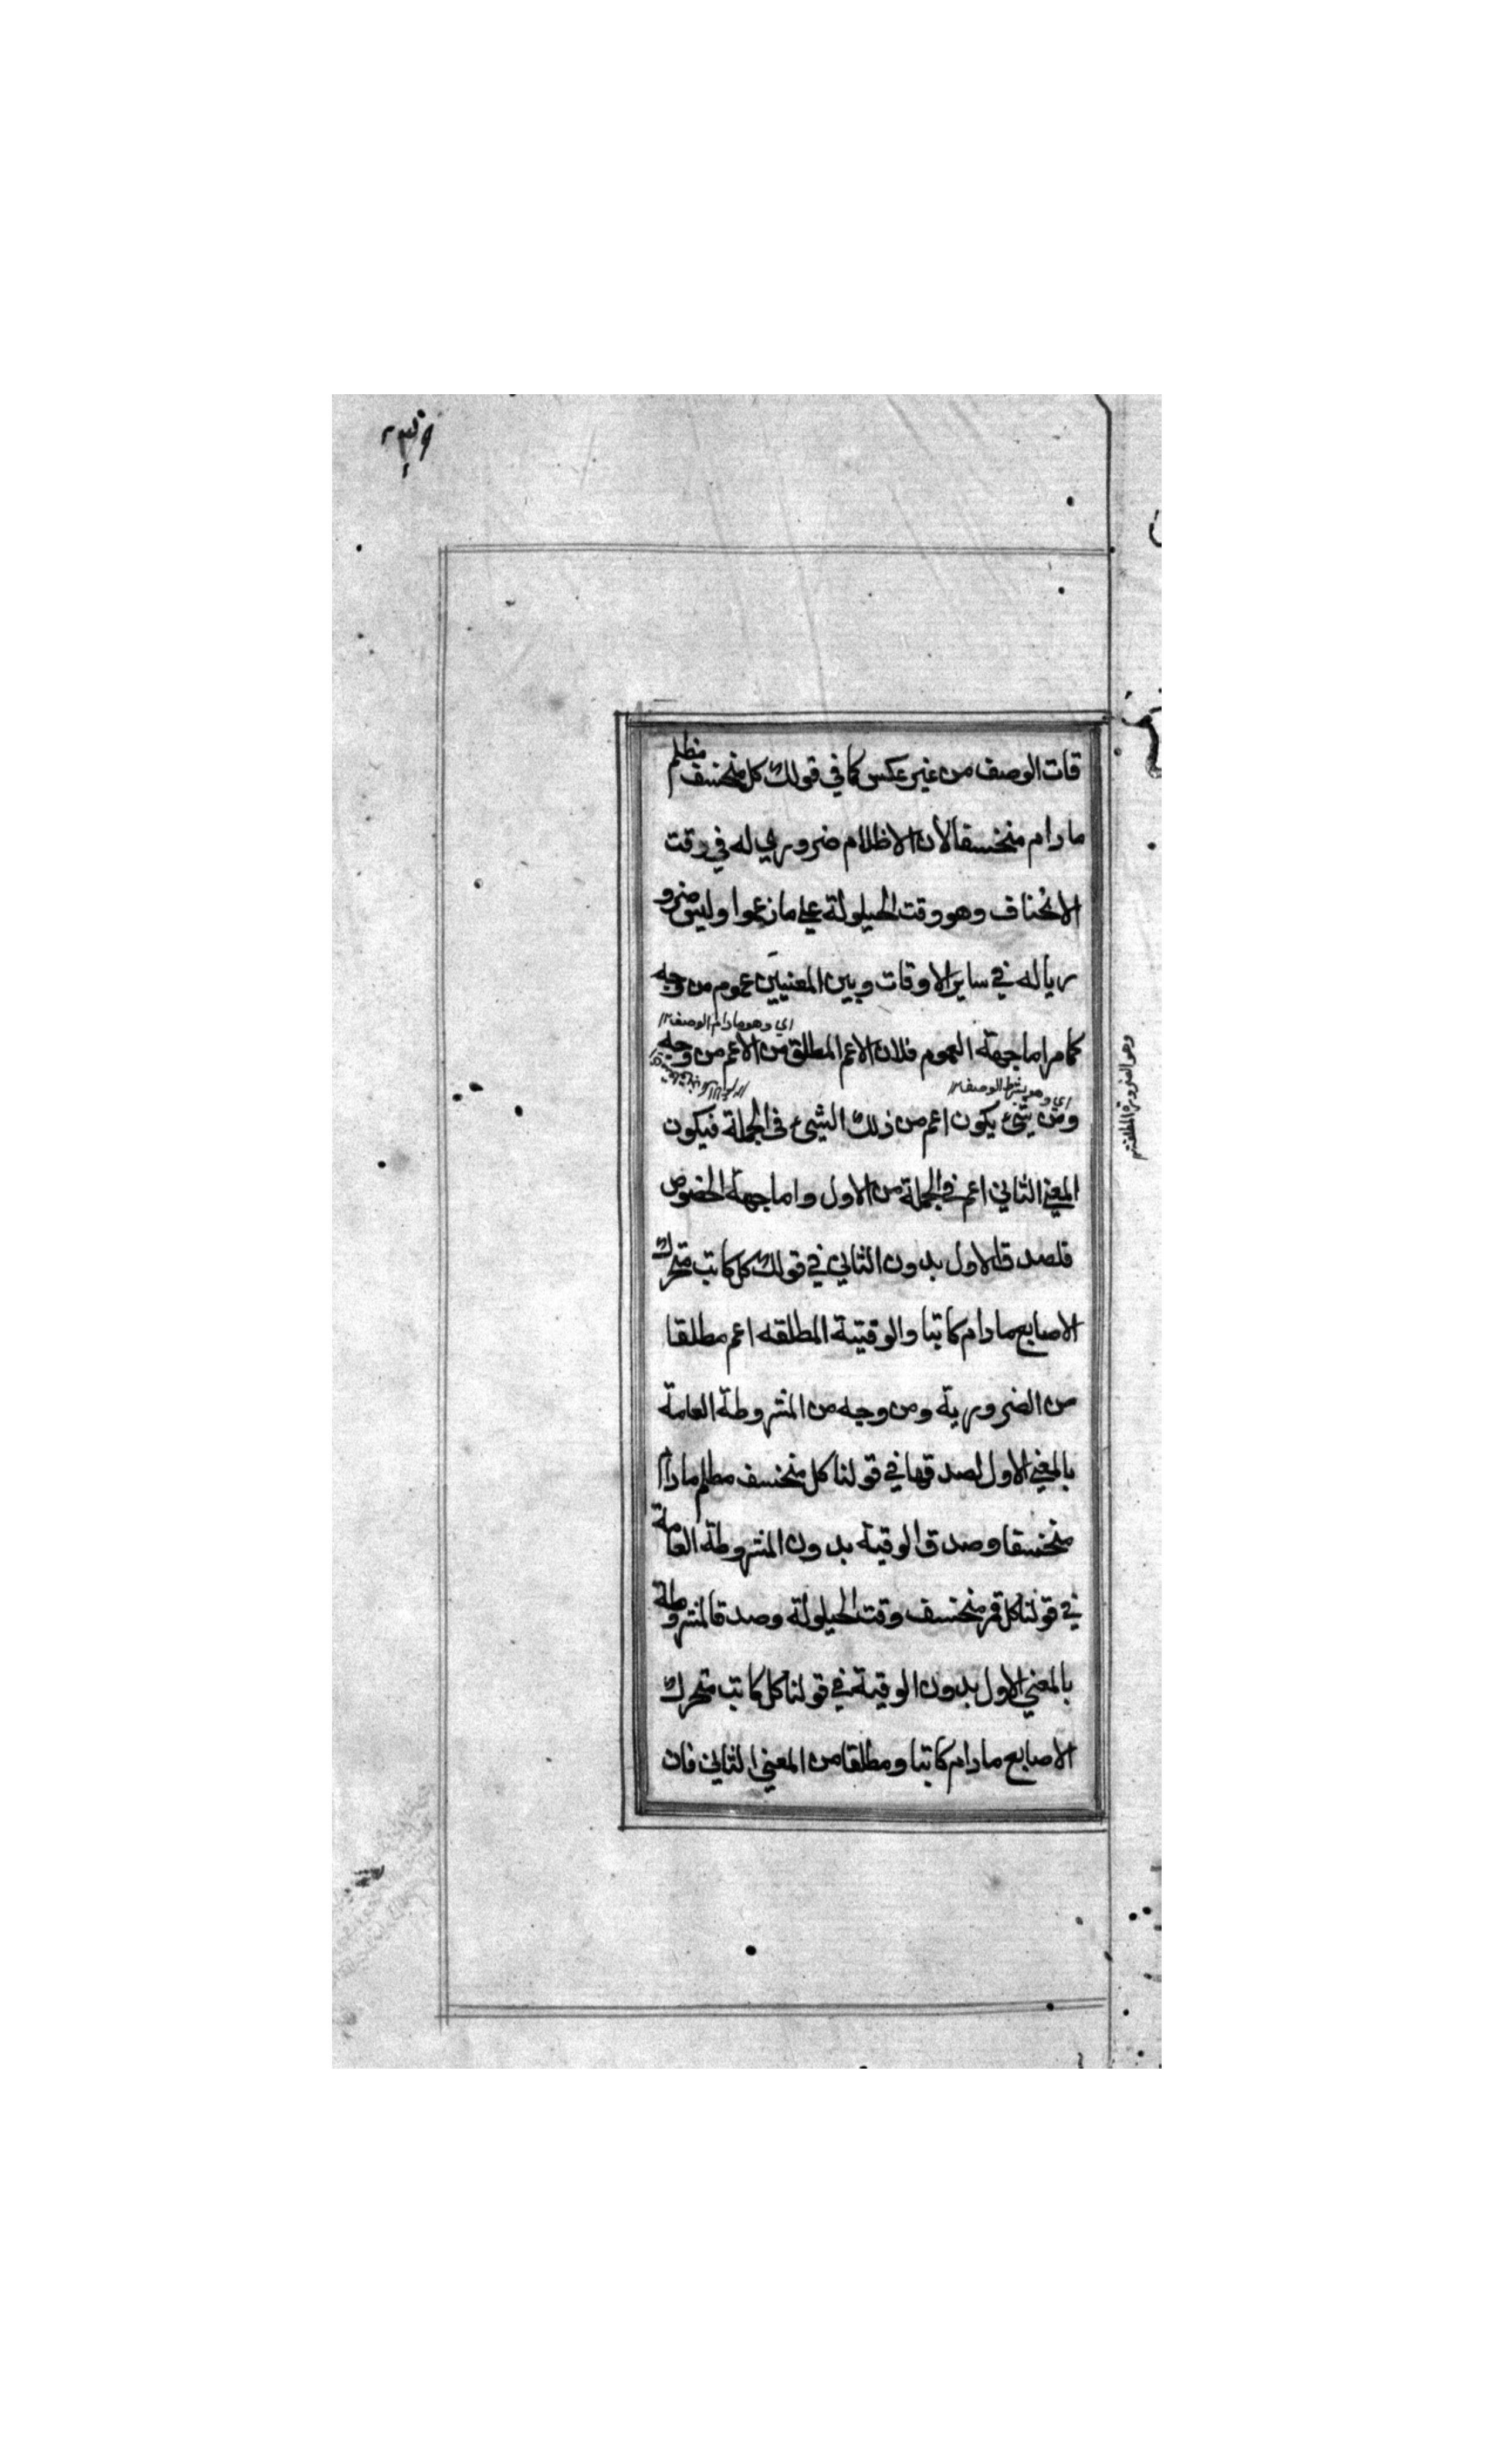 قات الوصف من غير عكس كما في قولك كل منخسف مظلم
ما دام منخسفا لان الاظلام ضروري له في وقت
الانخساف وهو وقت الحيلولة علي ما زعموا وليس ضرو
ريا له في ساير الاوقات وبين المعنيين عموم من وجه
اي وهو مادام الوصف ١٢
كما مر اما جهة العموم فلان الاعم المطلق من الاعم من وجه
اي وهو بشرط الوصف ١٢
من شيء يكون اعم من ذلك الشيء في الجملة فيكون
المعني الثاني اعم في الجملة من الاول واما جهة الخصوص
فلصدق الاول بدون الثاني في قولك كل كاتب متحرك
الاصابع ما دام كاتبا والوقتية المطلقه اعم مطلقا
من الضرورية ومن وجه من المشروطة العامة
بالمعني الاول لصدقها في قولنا كل منخسف مظلم ما دام
منخسفا وصدق الوقتية بدون المشروطة العامة
في قولنا كل قمر منخسف وقت الحيلولة وصدق المشروطة
بالمعني الاول بدون الوقتية في قولنا كل كاتب متحرك
الاصابع ما دام كاتبا ومطلقا من المعني الثاني فان